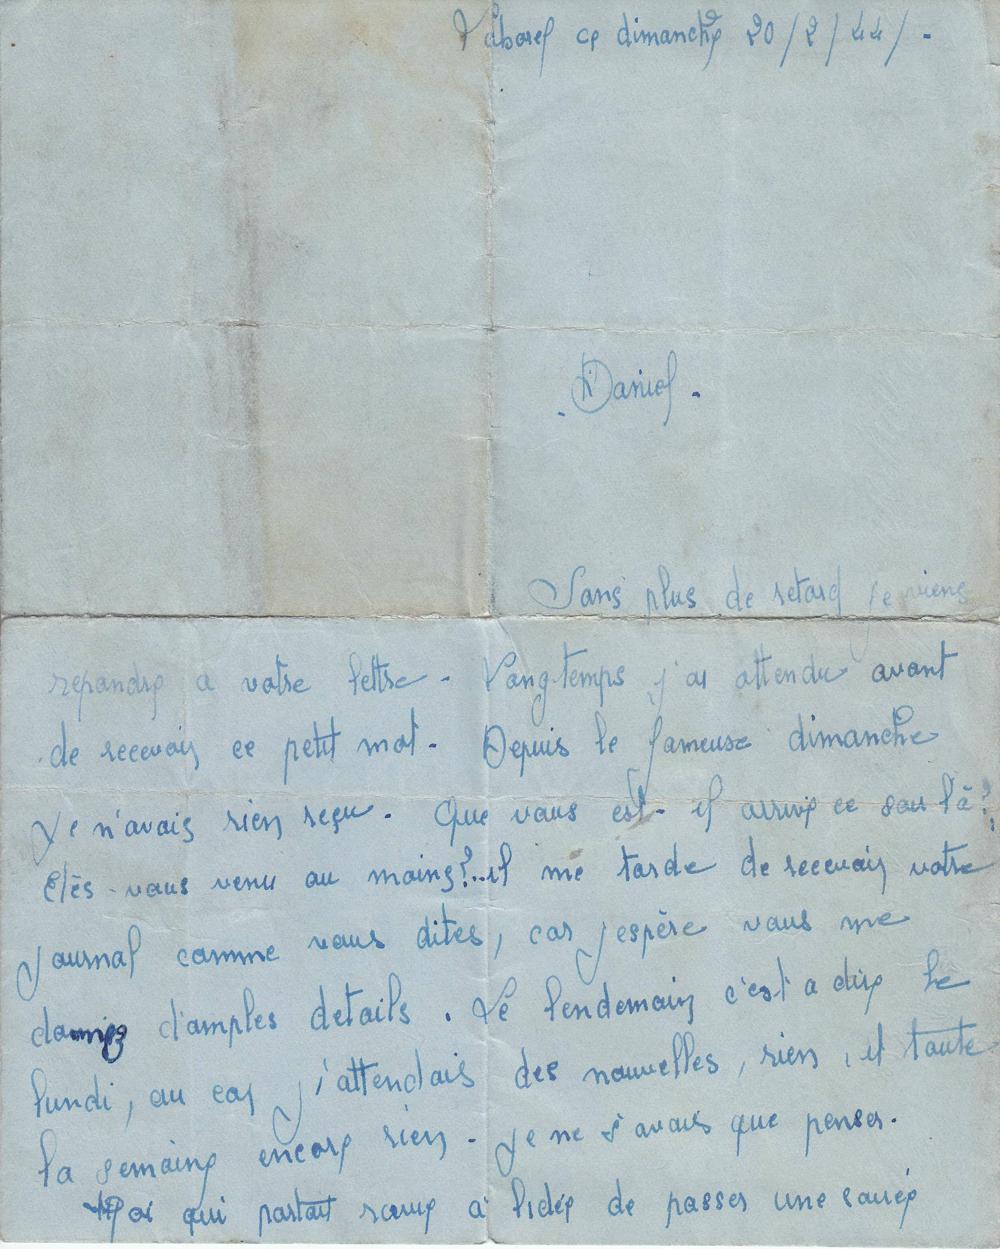 Laborel ce dimanche 20/2/44/.
. Daniel .
Sans plus de retard je viens
repondre a votre lettre - Longtemps j'ai attendu avant
de recevoir ce petit mot. Depuis le fameuse dimanche
je n'avais rien reçu. Que vous est-il arrivé ce soir là?
Etès-vous venu au moins?..il me tarde de recevoir votre
journal comme vous dites, car j'espère vous me
d'amples details. Le lendemain c'est a dire le
lundi, au car j'attendais des nouvelles, rien, et toute
la semaine encore rien - je ne savais que penser.
Moi qui partait ravie à l'idée de passer une soirée